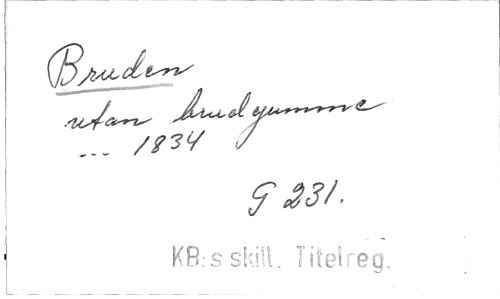 Bruden
utan brudgumme
... 1834
G 231.
KB:s skill. Titelreg.